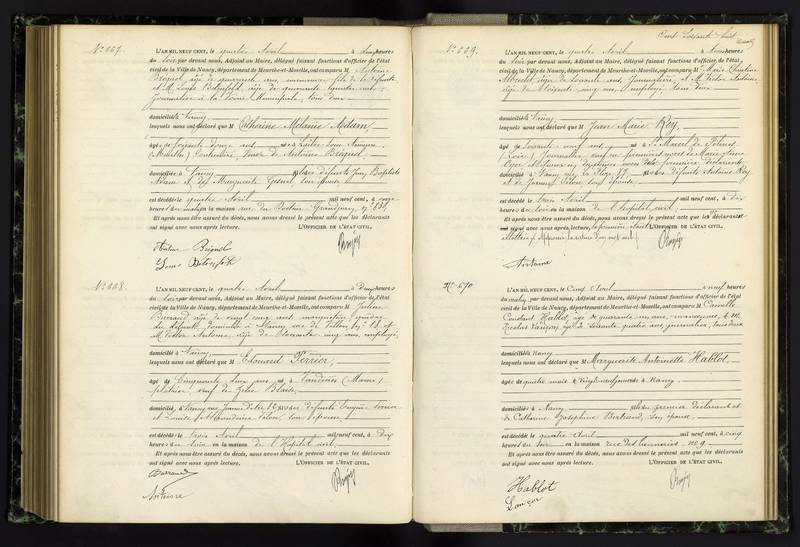 N° 667.
L'AN MIL NEUF CENT, le quatre Avril à deux heures
du soir par devant Nous, Adjoint au Maire, délégué faisant fonctions d'officier de l'état
civil de la Ville de Nancy, département de Meurthe-et-Moselle, ont comparu M Antoine
Brignel, âgé de quarante ans, fils de la défunte
et M. Louis âgé de quarante ans,
journalier à la tous deux
domiciliés à Nancy
lesquels nous ont déclaré que M Catherine Mélanie Adam,
âgée de soixante douze ans, née à
(Moselle) couturière, veuve de Antoine Brignel
domiciliée à Nancy fille des défunts Jean Baptiste
Adam et de Marguerite son épouse
est décédée le quatre Avril mil neuf cent, à onze
heures du matin en la maison rue du Docteur Grandjean, n°
Et après nous être assuré du décès, nous avons dressé le présent acte que les déclarants
ont signé avec nous après lecture. L'OFFICIER DE L'ÉTAT CIVIL,
Antoine Brignel
Louis
N° 668.
L'AN MIL NEUF CENT, le quatre Avril à deux heures
du soir par devant Nous, Adjoint au Maire, délégué faisant fonctions d'officier de l'état
civil de la Ville de Nancy, département de Meurthe-et-Moselle, ont comparu M Julien
Barraud, âgé de vingt cinq ans,
du défunt, domicilié à Nancy rue de n° 13, et
M. Victor Antoine âgé de soixante cinq ans, employé,
domicilié à Nancy
lesquels nous ont déclaré que M Edouard Perrier,
âgé de Cinquante deux ans né à (Marne)
plâtrier, veuf de Julie Blaise,
domicilié à Nancy fils des défunts
et Louise son épouse
est décédé le trois Avril mil neuf cent, à dix
heures du soir en la maison de l'Hôpital civil.
Et après nous être assuré du décès, nous avons dressé le présent acte que les déclarants
ont signé avec nous après lecture. L'OFFICIER DE L'ÉTAT CIVIL,
Barraud
Antoine
Cent soixante huit
N° 669.
L'AN MIL NEUF CENT, le quatre Avril à deux heures
du soir par devant Nous, Adjoint au Maire, délégué faisant fonctions d'officier de l'état
civil de la Ville de Nancy, département de Meurthe-et-Moselle, ont comparu M Marie Christine
âgée de soixante ans, journalière, et M. Victor Antoine
âgé de soixante cinq ans, employé tous deux
domiciliés à Nancy
lesquels nous ont déclaré que M Jean Marie Roy,
âgé de soixante neuf ans, né à St Marcel de Félines
(Loire) journalier, veuf en premières noces de Marie Anne
Oger, époux en deuxièmes noces de la première déclarante
domicilié à Nancy rue 37, fils des défunts Antoine Roy
et de Jeanne son épouse
est décédé le trois Avril mil neuf cent, à dix
heures du soir en la maison de l'hôpital civil,
Et après nous être assuré du décès, nous avons dressé le présent acte que les déclarants
ont signé avec nous après lecture, L'OFFICIER DE L'ÉTAT CIVIL,
Antoine
N° 670
L'AN MIL NEUF CENT, le Cinq Avril à neuf heures
du matin par devant Nous, Adjoint au Maire, délégué faisant fonctions d'officier de l'état
civil de la Ville de Nancy, département de Meurthe-et-Moselle, ont comparu M Camille
Constant Hablot, âgé de quarante un ans, manœuvre, & M.
Nicolas Lançon, âgé de soixante quatre ans journalier, tous deux
domiciliés à Nancy
lesquels nous ont déclaré que M Marguerite Antoinette Hablot,
âgée de quatre mois & vingt neuf jours née à Nancy
domiciliée à Nancy fille du premier déclarant et
de Catherine Joséphine Bertrand, son épouse
est décédée le quatre Avril mil neuf cent, à cinq
heures du soir en la maison rue des Tanneries n° 9
Et après nous être assuré du décès, nous avons dressé le présent acte que les déclarants
ont signé avec nous après lecture. L'OFFICIER DE L'ÉTAT CIVIL,
Hablot
Lançon